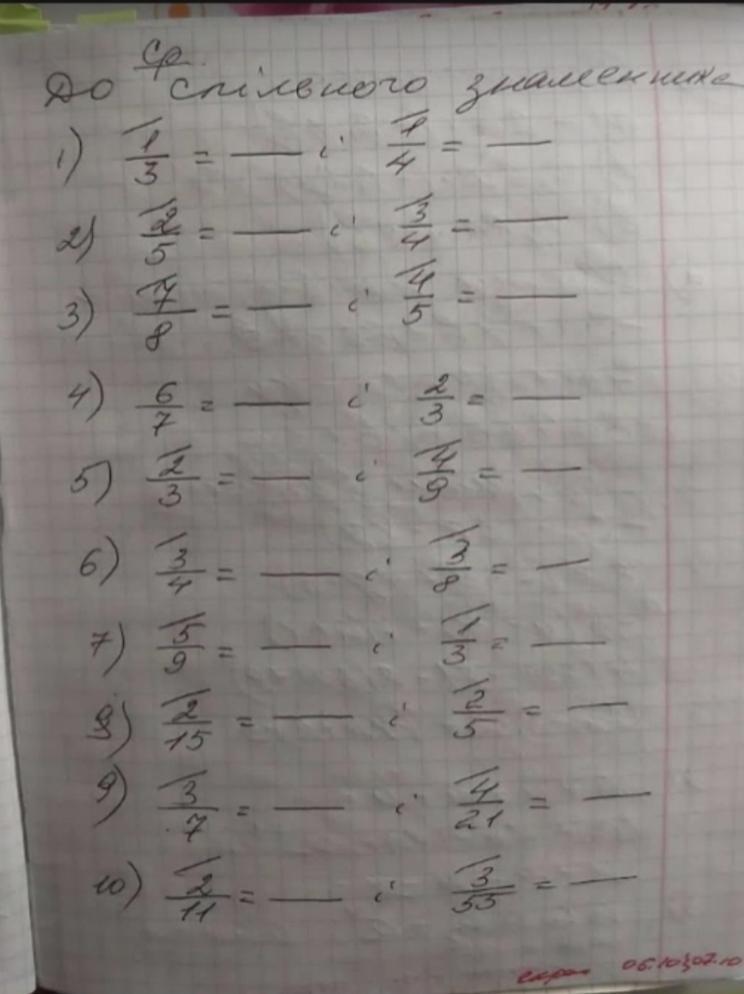 Ср.
До спільного знаменника
1) 1/3 = — і 1/4 = —
2) 2/5 = — і 3/4 = —
3) 7/8 = — і 4/5 = —
4) 6/7 = — і 2/3 = —
5) 2/3 = — і 4/9 = —
6) 3/4 = — і 3/8 = —
7) 5/9 = — і 1/3 = —
8) 2/15 = — і 2/5 = —
9) 3/7 = — і 4/21 = —
10) 2/11 = — і 3/55 = —
06.10 07.10